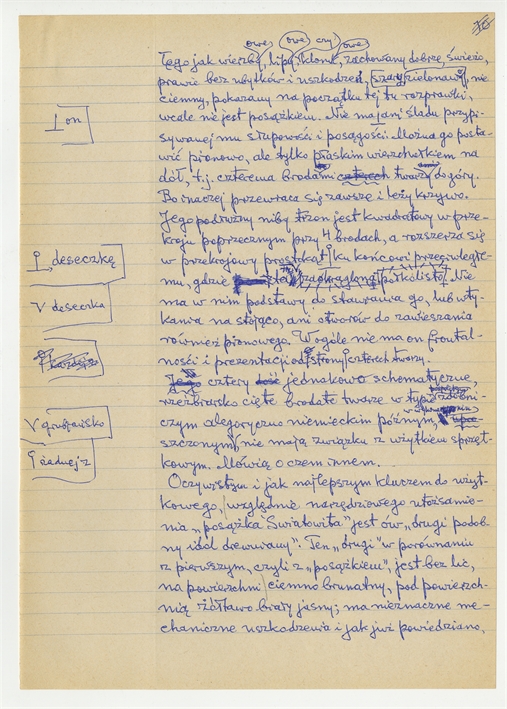 owej owe czy owe
Tego jak wierzby, lipy, klonu, zachowany dobrze, świeżo,
prawie bez ubytków i uszkodzeń, szary zielonawy, nie
ciemny, pokazany na początku tej tu rozprawki,
wcale nie jest posążkiem. Nie ma ani śladu przypi-
sywanej mu słupowości i posągości. Można go posta-
wić pionowo, ale tylko płaskim wierzchołkiem na
dół, t.j. czterema brodami czterech twarzy do góry.
Bo inaczej przewraca się zawsze i leży krzywo.
Jego podłużny niby trzon jest kwadratowy w prze-
kroju poprzecznym przy 4 brodach, a rozszerza się
w przekrojowy prostokąt ku końcowi przeciwległe-
mu, gdzie zaokrąglona półkolisto. Nie
ma w nim podstawy do stawiania go, lub wty-
kania na stojąco, ani otworów do zawieszania
również pionowego. W ogóle nie ma on frontal-
ności i prezentacji od strony czterech twarzy.
cztery jednakowo schematyczne,
rzeźbiarsko cięte brodate twarze w typie
czym alegorycznie niemieckim późnym,
szczonym, nie mają związku z użytkiem sprzęt-
kowym. Mówią o czem innem.
Oczywistym i jak najlepszym kluczem do użyt-
kowego, względnie narzędziowego utożsamie-
nia „posążka Światowita" jest ów „drugi podob-
ny idol drewniany". Ten „drugi" w porównaniu
z pierwszym, czyli z „posążkiem", jest bez lic,
na powierzchni ciemno brunatny, pod powierzch-
nią żółtawo biały jasny; ma nieznaczne me-
chaniczne uszkodzenia i jak już powiedziano,
I on
deseczką
V deseczka
każdej z
V grubiańsko
żadnej z